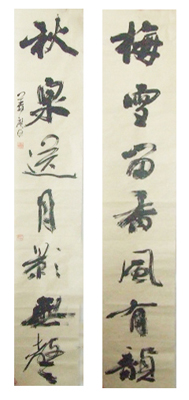 梅雪留香風有韻
秋泉送月影無聲